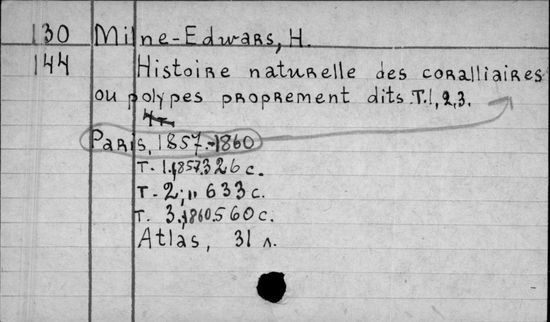 130 Milne-Edwars, H.
144 Histoire naturelle des coralliaires
ou polypes proprement dits. T.1,2,3.
Paris, 1857-1860
T. 1, 1857. 326 c.
T. 2, " 633 c.
T. 3, 1860. 560 c.
Atlas, 31 л.